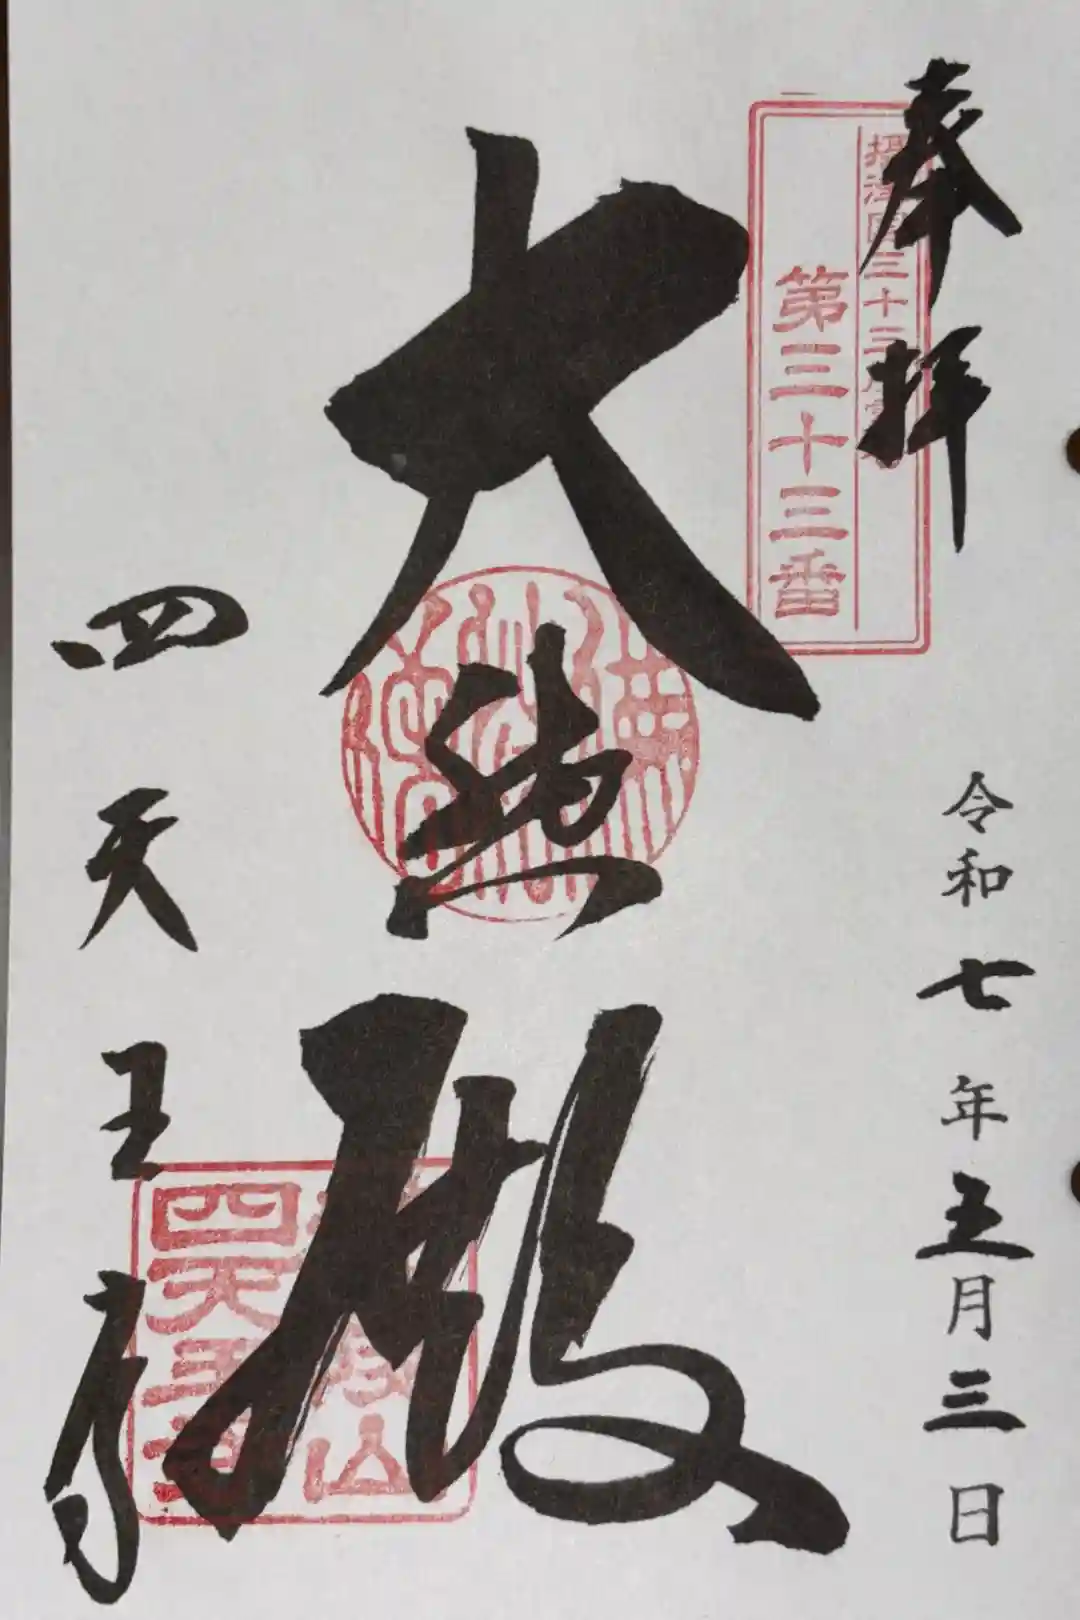 奉拝
摂津国三十三所
第三十三番
令和七年五月三日
大悲殿
四天王寺
四天王寺